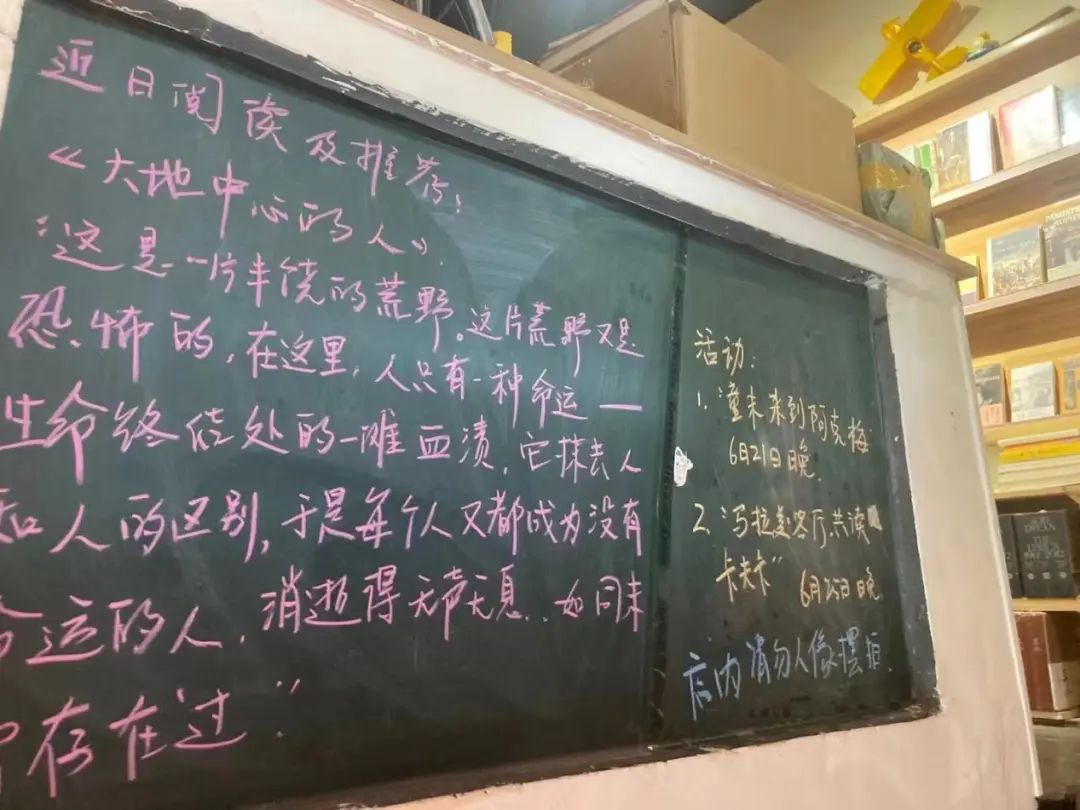 近日阅读及推荐：
《大地中心的人》
“这是一片丰饶的荒野。这片荒野又是
恐怖的，在这里，人只有一种命运——
生命终结处的一滩血渍，它抹去人
和人的区别，于是每个人又都成为没有
命运的人，消逝得无声无息，如同未
曾存在过”
活动：
1、潼未来到阿克梅
6月21日晚
2、冯拉美客厅共读
卡夫卡” 6月25日晚
店内请勿人像摆拍